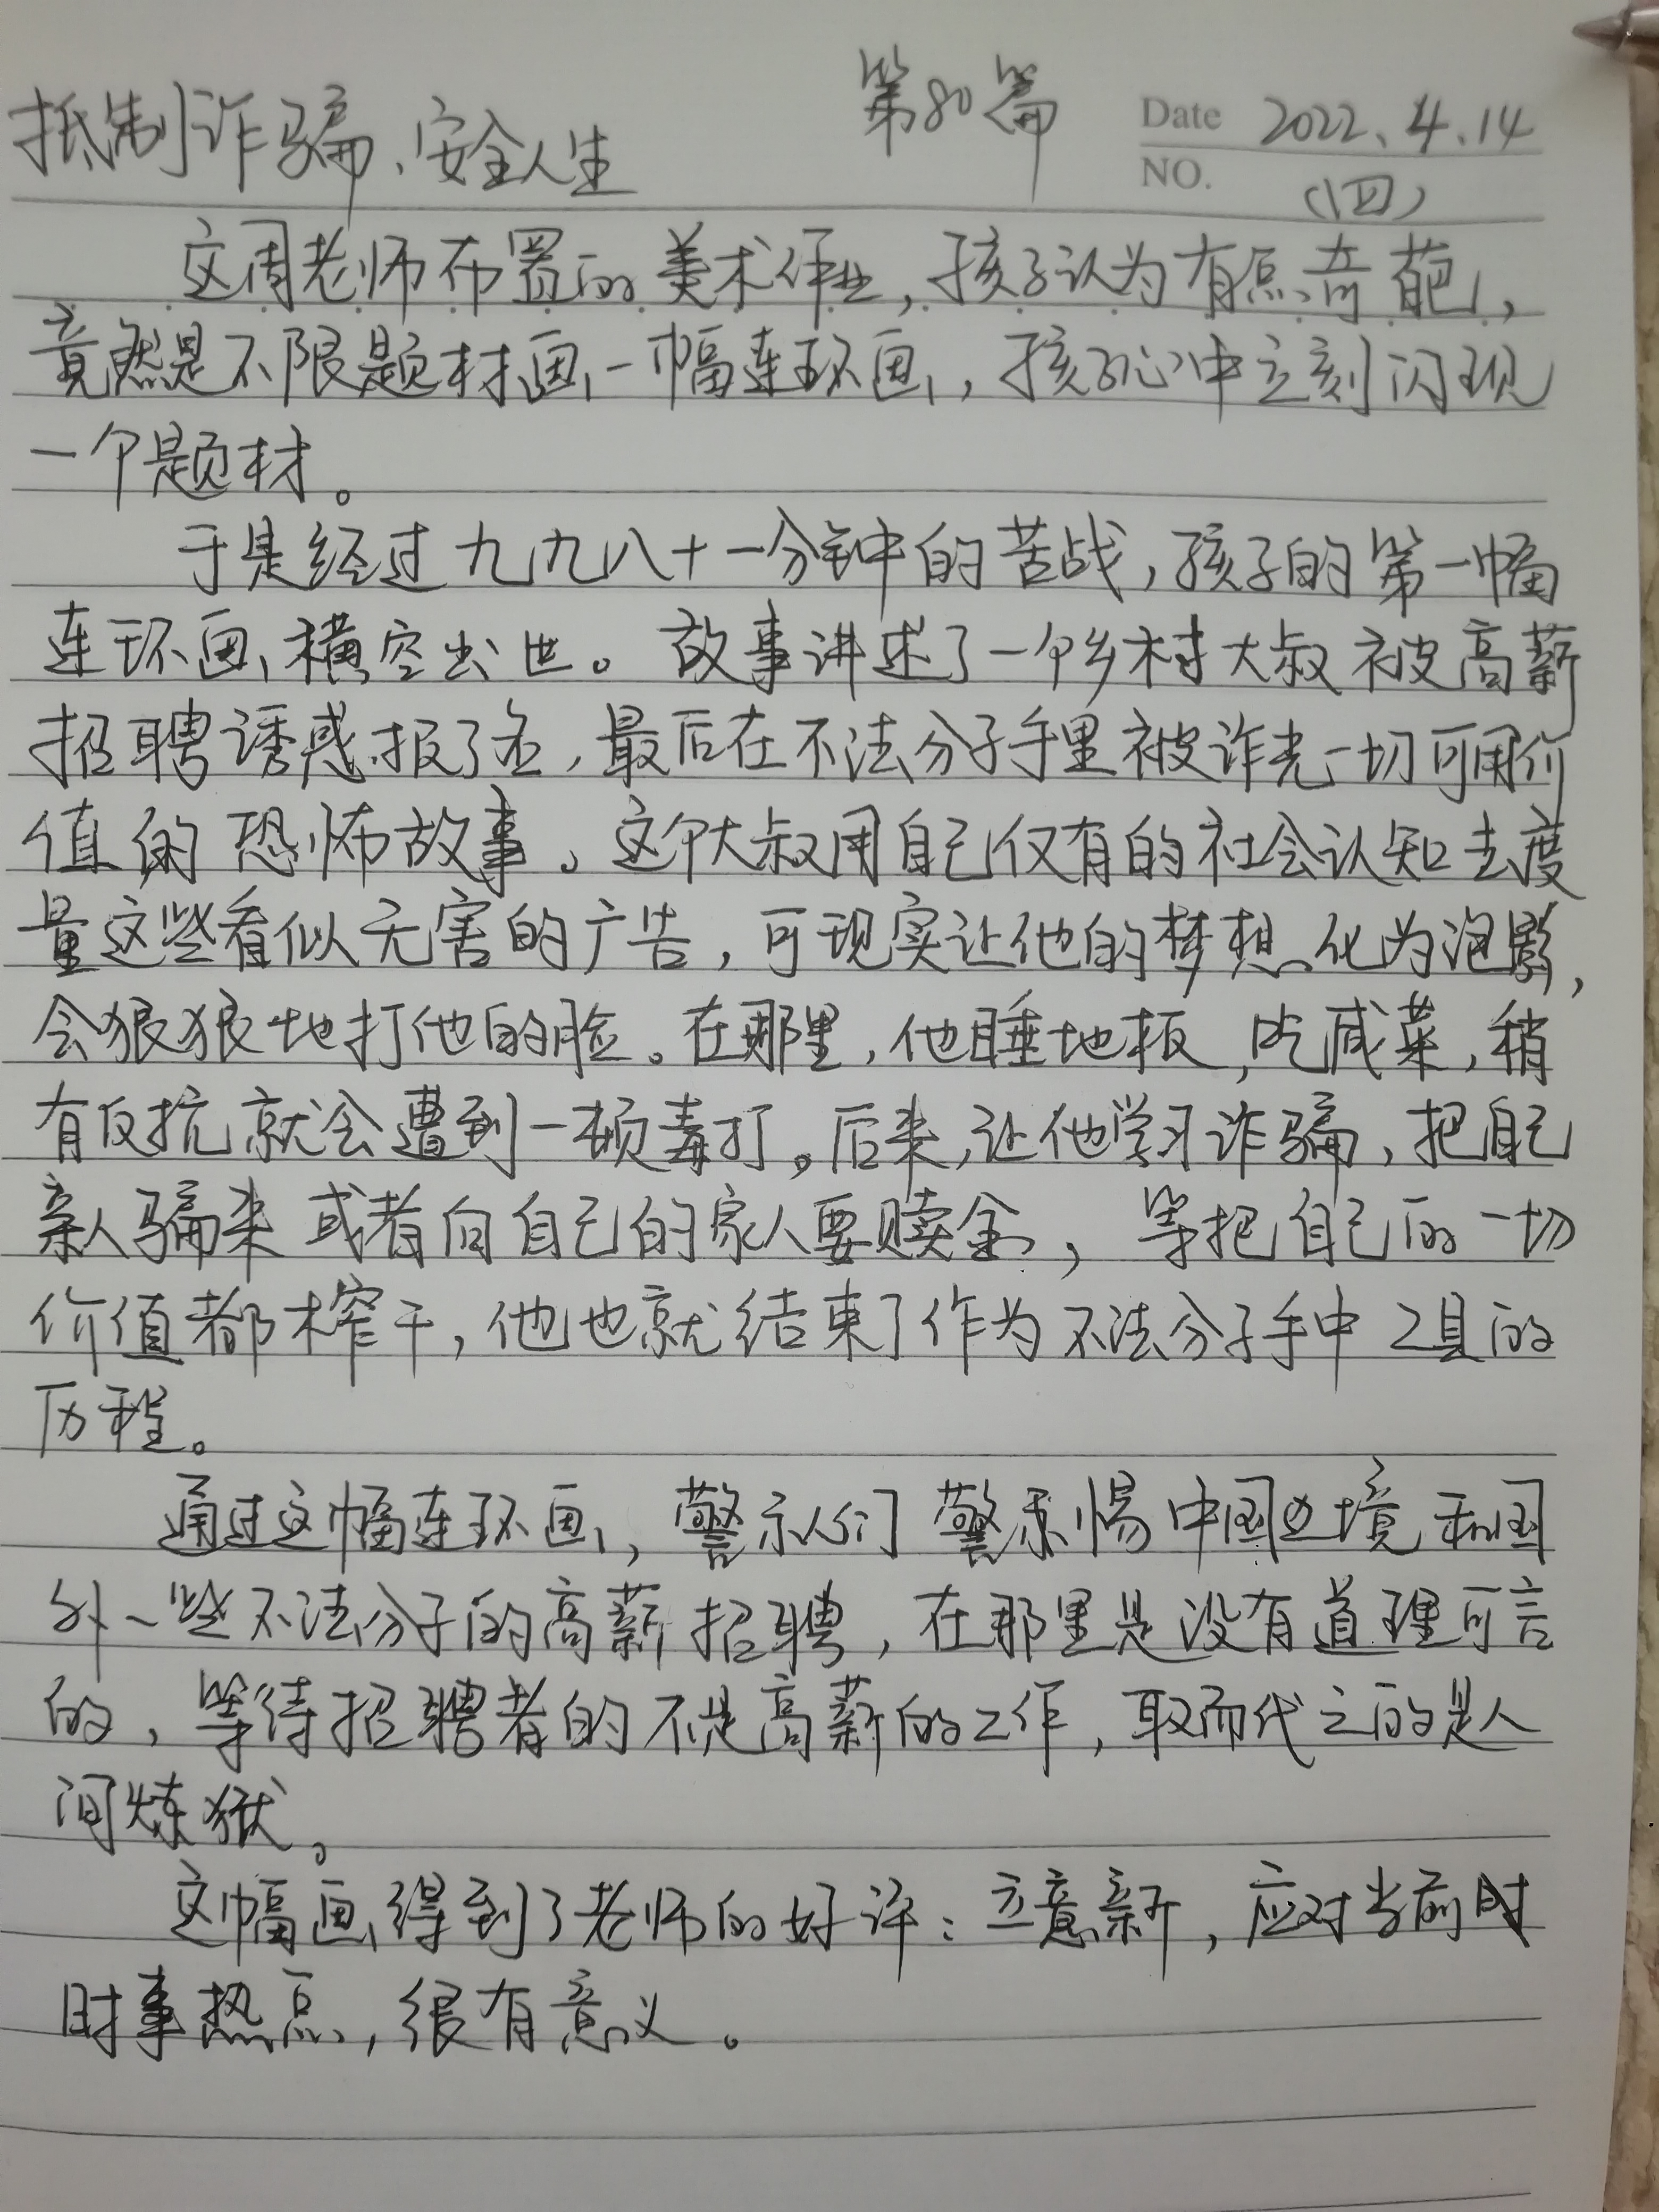 第80篇
Date 2022.4.14
抵制诈骗、安全人生
NO. (四)
这周老师布置的美术作业,孩子认为有点奇葩,
竟然是不限题材画一幅连环画,孩子心中立刻闪现
一个题材。
于是经过九九八十一分钟的苦战,孩子的第一幅
连环画横空出世。故事讲述了一个乡村大叔被高薪
招聘诱惑报了名,最后在不法分子手里被诈光一切可用价
值的恐怖故事。这个大叔用自己仅有的社会认知去度
量这些看似无害的广告,可现实让他的梦想化为泡影,
会狠狠地打他的脸。在那里,他睡地板,吃咸菜,稍
有反抗就会遭到一顿毒打。后来,让他学习诈骗,把自己
亲人骗来或者向自己的家人要赎金,等把自己的一切
价值都榨干,他也就结束了作为不法分子手中工具的
历程。
通过这幅连环画,警示人们警惕中国边境和国
外一些不法分子的高薪招聘,在那里是没有道理可言
的,等待招聘者的不是高薪的工作,取而代之的是人
间炼狱。
这幅画得到了老师的好评:立意新,应对当前时
时事热点,很有意义。